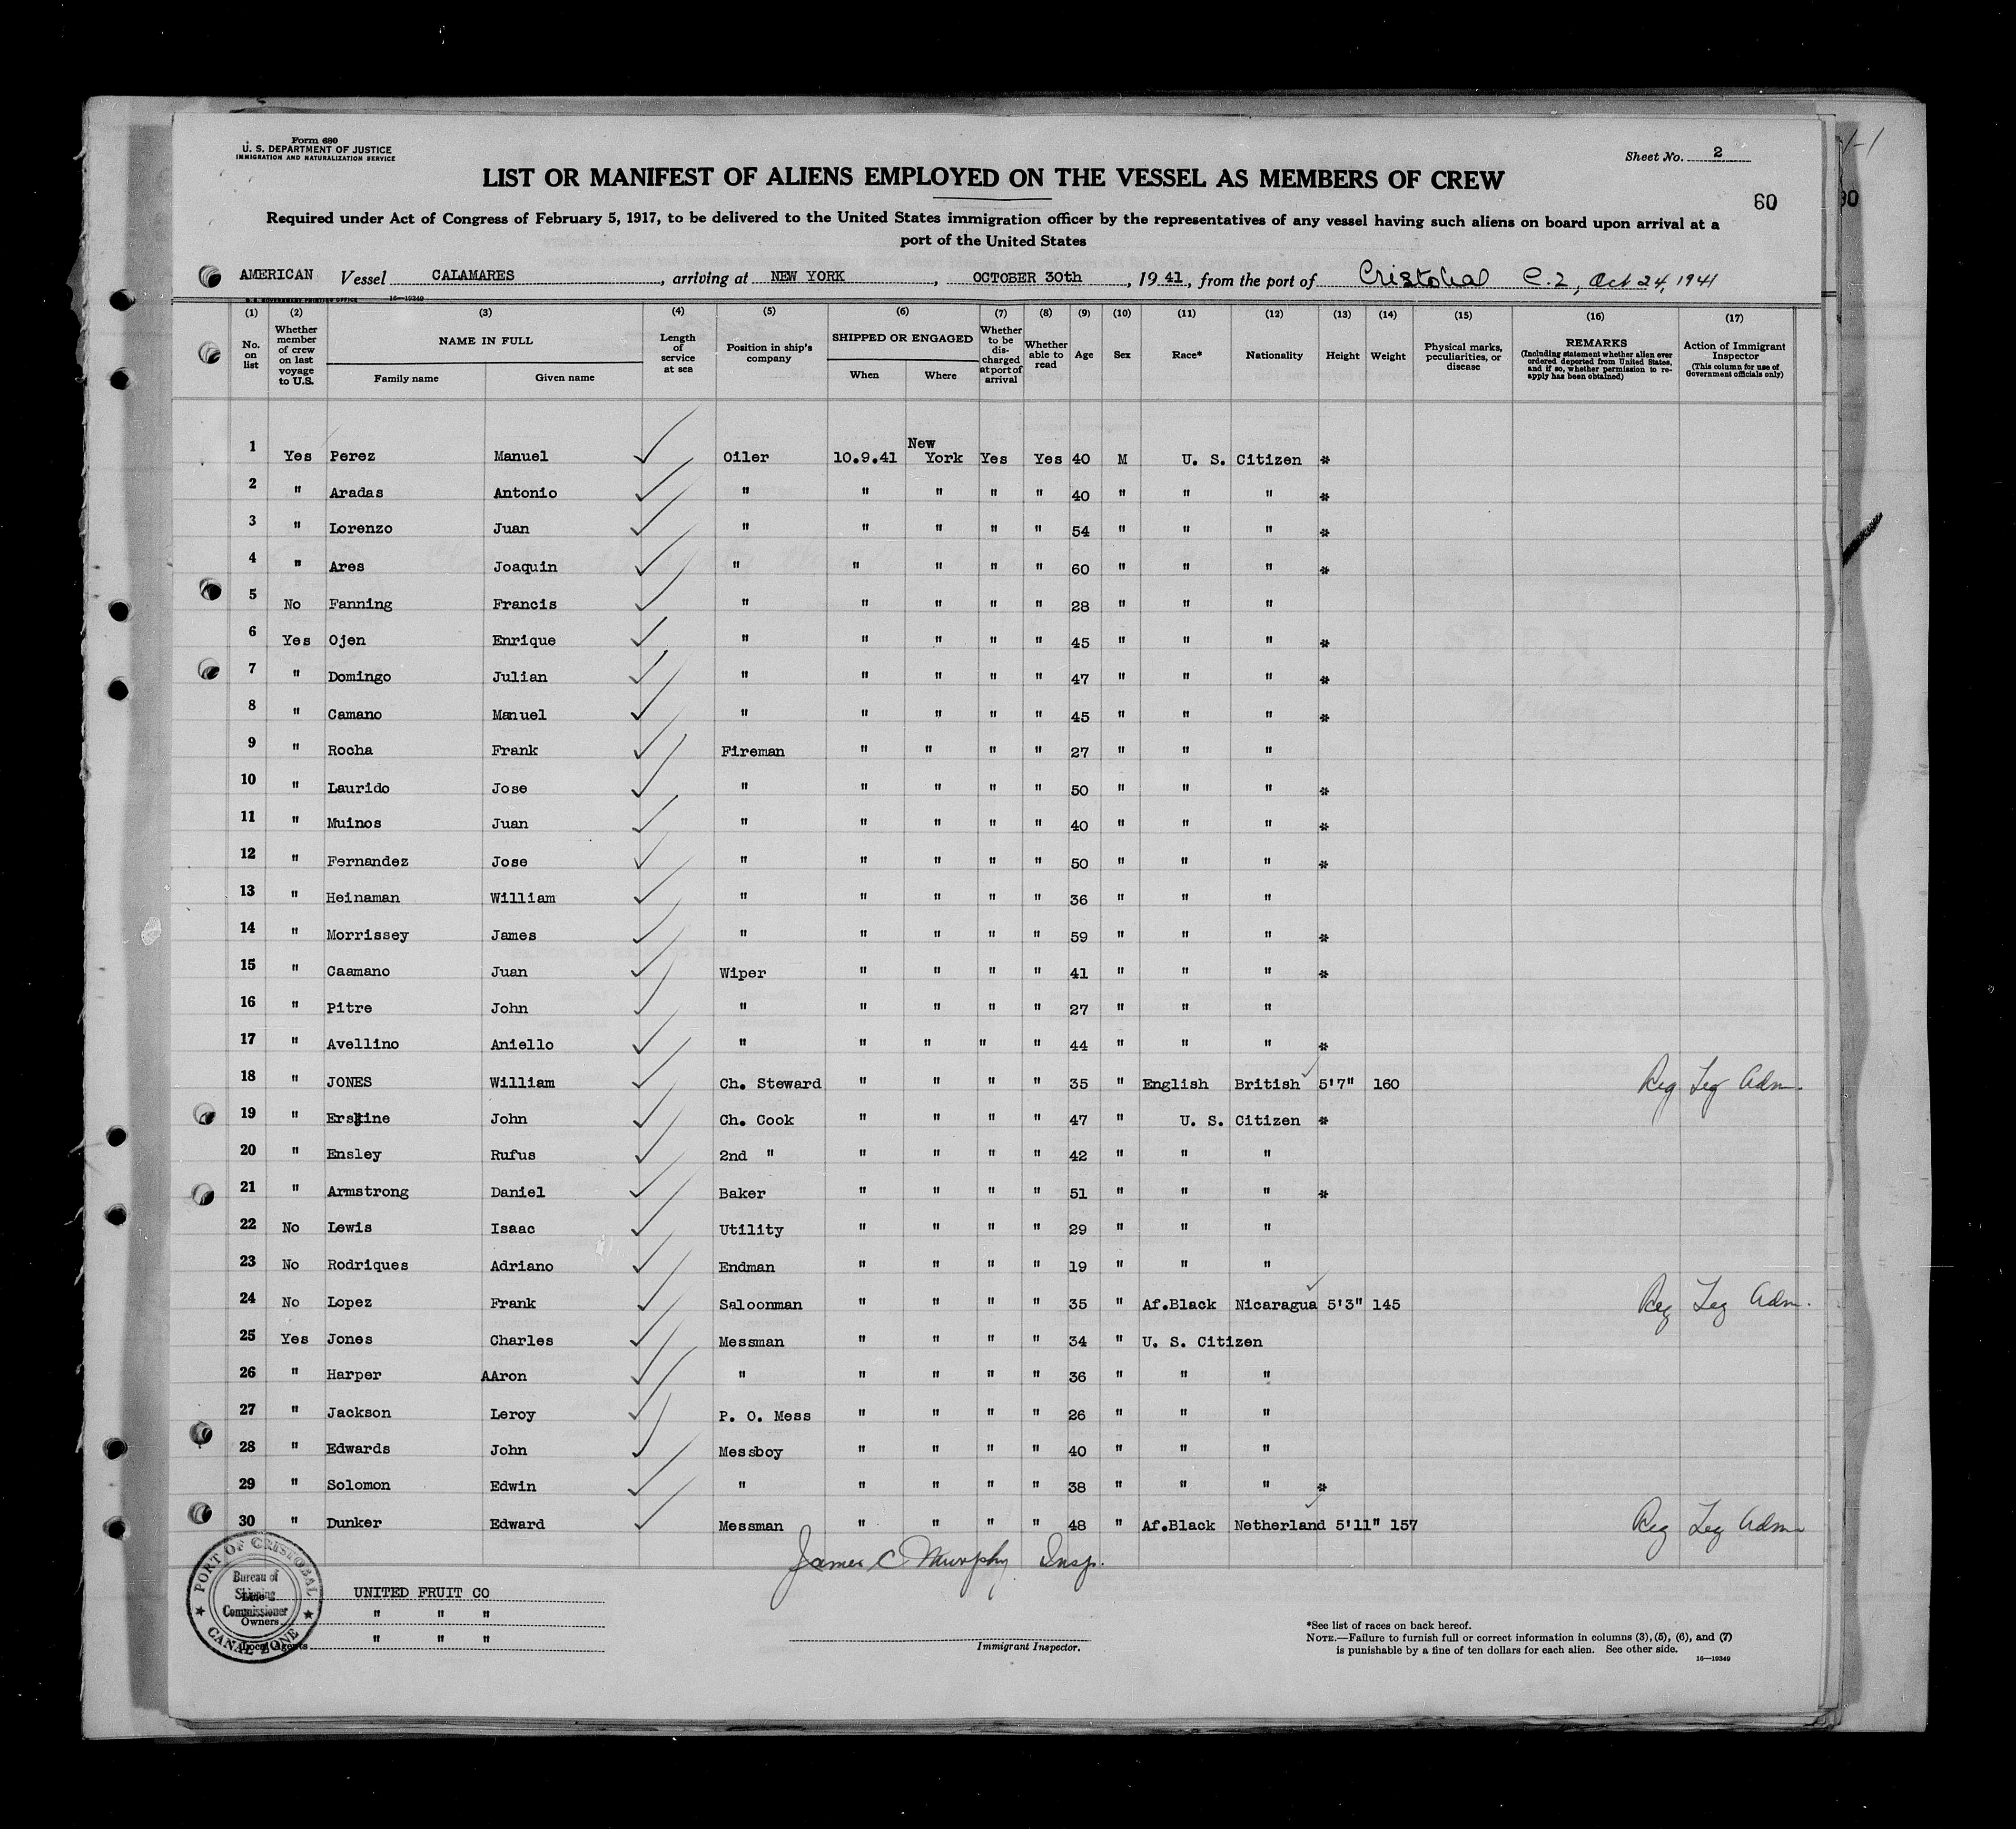 Form 680
U. S. DEPARTMENT OF JUSTICE
IMMIGRATION AND NATURALIZATION SERVICE
Sheet No. 2
LIST OR MANIFEST OF ALIENS EMPLOYED ON THE VESSEL AS MEMBERS OF CREW
60
Required under Act of Congress of February 5, 1917, to be delivered to the United States immigration officer by the representatives of any vessel having such aliens on board upon arrival at a
port of the United States
AMERICAN Vessel CALAMARES, arriving at NEW YORK, OCTOBER 30th, 19 41, from the port of Cristobal C.Z, Oct 24, 1941
U. S. GOVERNMENT PRINTING OFFICE 16—19349
(1) No. on list
(2) Whether member of crew on last voyage to U.S.
(3) NAME IN FULL
Family name Given name
(4) Length of service at sea
(5) Position in ship's company
(6) SHIPPED OR ENGAGED
When Where
(7) Whether to be discharged at port of arrival
(8) Whether able to read
(9) Age
(10) Sex
(11) Race*
(12) Nationality
(13) Height
(14) Weight
(15) Physical marks, peculiarities, or disease
(16) REMARKS (Including statement whether alien ever ordered deported from United States, and if so, whether permission to reapply has been obtained)
(17) Action of Immigrant Inspector (This column for use of Government officials only)
1 Yes Perez Manuel Oiler 10.9.41 New York Yes Yes 40 M U. S. Citizen *
2 " Aradas Antonio " " " " " 40 " " " *
3 " Lorenzo Juan " " " " " 54 " " " *
4 " Ares Joaquin " " " " " 60 " " " *
5 No Fanning Francis " " " " " 28 " " "
6 Yes Ojen Enrique " " " " " 45 " " " *
7 " Domingo Julian " " " " " 47 " " " *
8 " Camano Manuel " " " " " 45 " " " *
9 " Rocha Frank Fireman " " " " 27 " " "
10 " Laurido Jose " " " " " 50 " " " *
11 " Muinos Juan " " " " " 40 " " " *
12 " Fernandez Jose " " " " " 50 " " " *
13 " Heinaman William " " " " " 36 " " "
14 " Morrissey James " " " " " 59 " " " *
15 " Caamano Juan Wiper " " " " 41 " " " *
16 " Pitre John " " " " " 27 " " "
17 " Avellino Aniello " " " " " 44 " " " *
18 " JONES William Ch. Steward " " " " 35 " English British 5'7" 160 Reg Leg Adm.
19 " Erskine John Ch. Cook " " " " 47 " U. S. Citizen *
20 " Ensley Rufus 2nd " " " " " 42 " " "
21 " Armstrong Daniel Baker " " " " 51 " " " *
22 No Lewis Isaac Utility " " " " 29 " " "
23 No Rodriques Adriano Endman " " " " 19 " " "
24 No Lopez Frank Saloonman " " " " 35 " Af.Black Nicaragua 5'3" 145 Reg Leg Adm.
25 Yes Jones Charles Messman " " " " 34 " U. S. Citizen
26 " Harper AAron " " " " " 36 " " "
27 " Jackson Leroy P. O. Mess " " " " 26 " " "
28 " Edwards John Messboy " " " " 40 " " "
29 " Solomon Edwin " " " " " 38 " " " *
30 " Dunker Edward Messman " " " " 48 " Af.Black Netherland 5'11" 157 Reg Leg Adm
James C Murphy Insp.
PORT OF CRISTOBAL
Bureau of
Shipping
Commissioner
CANAL ZONE
Line UNITED FRUIT CO
Owners " " "
Local Agents " " "
Immigrant Inspector.
*See list of races on back hereof.
NOTE.—Failure to furnish full or correct information in columns (3), (5), (6), and (7)
is punishable by a fine of ten dollars for each alien. See other side.
16—19349